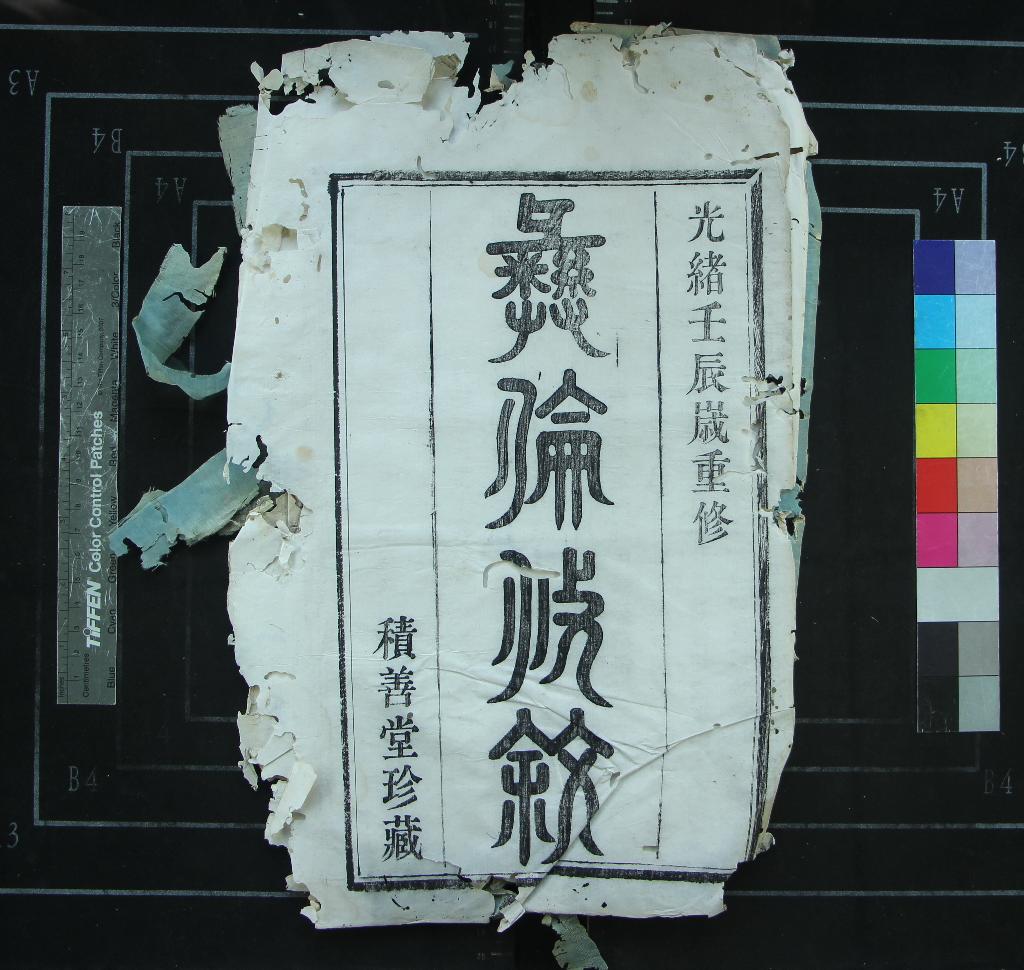 光緒壬辰歲重修
彝倫攸敘
積善堂珍藏
TIFFEN Color Control Patches
Centimetres
Inches
Blue
Cyan
Green
Yellow
Red
Magenta
White
3/Color
Black
A3
B4
A4
A4
B4
B4
3